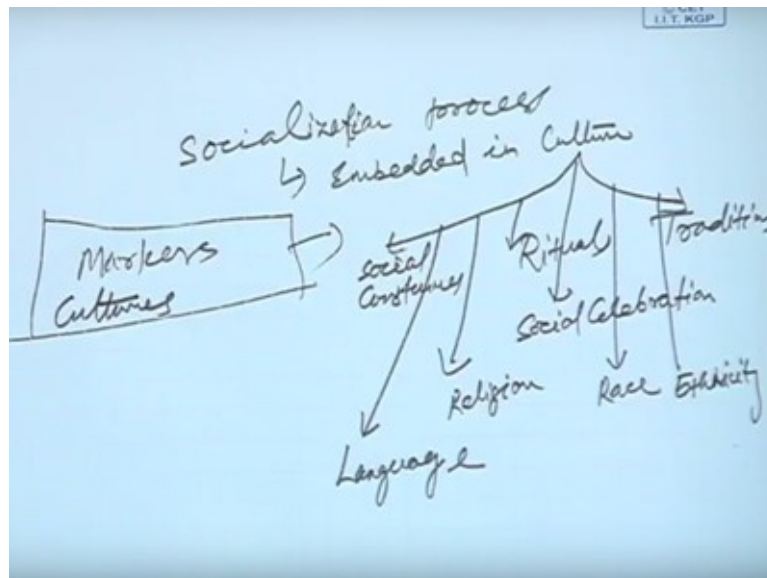 © CET
I.I.T. KGP
Socialization process
↳ Embedded in Culture
Markers
Cultures
Social
Rituals
Tradition
Social Celebration
Religion
Race
Ethnicity
Language